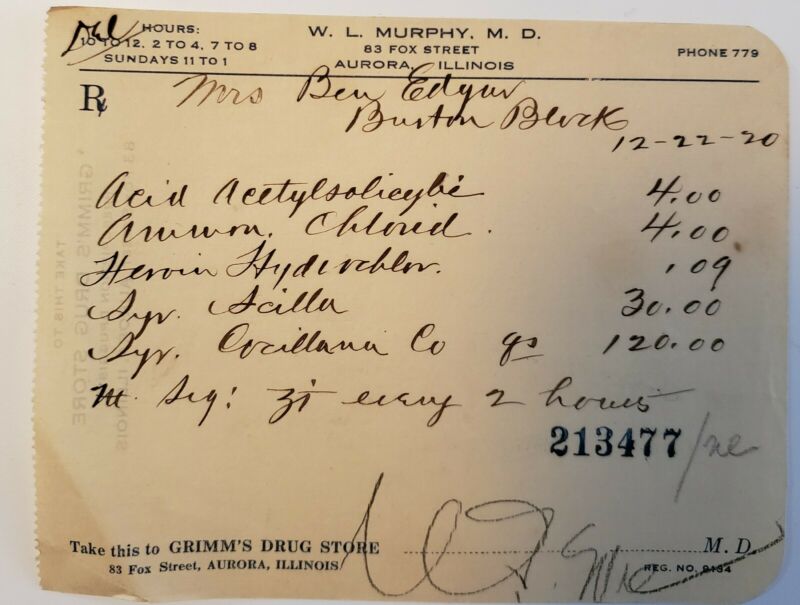 Del
HOURS:
10 TO 12, 2 TO 4, 7 TO 8
SUNDAYS 11 TO 1
W. L. MURPHY, M. D.
83 FOX STREET
AURORA, ILLINOIS
PHONE 779
℞ Mrs Ben Edgar
Burton Block
12-22-20
Acid Acetylsalicylic 4.00
Ammon. Chlorid. 4.00
Heroin Hydrochlor. .09
Syr. Scilla 30.00
Syr. Cocillana Co qs 120.00
M. Sig: ʒi every 2 hours
213477
Take this to GRIMM'S DRUG STORE M. D.
83 Fox Street, AURORA, ILLINOIS REG. NO. 9134